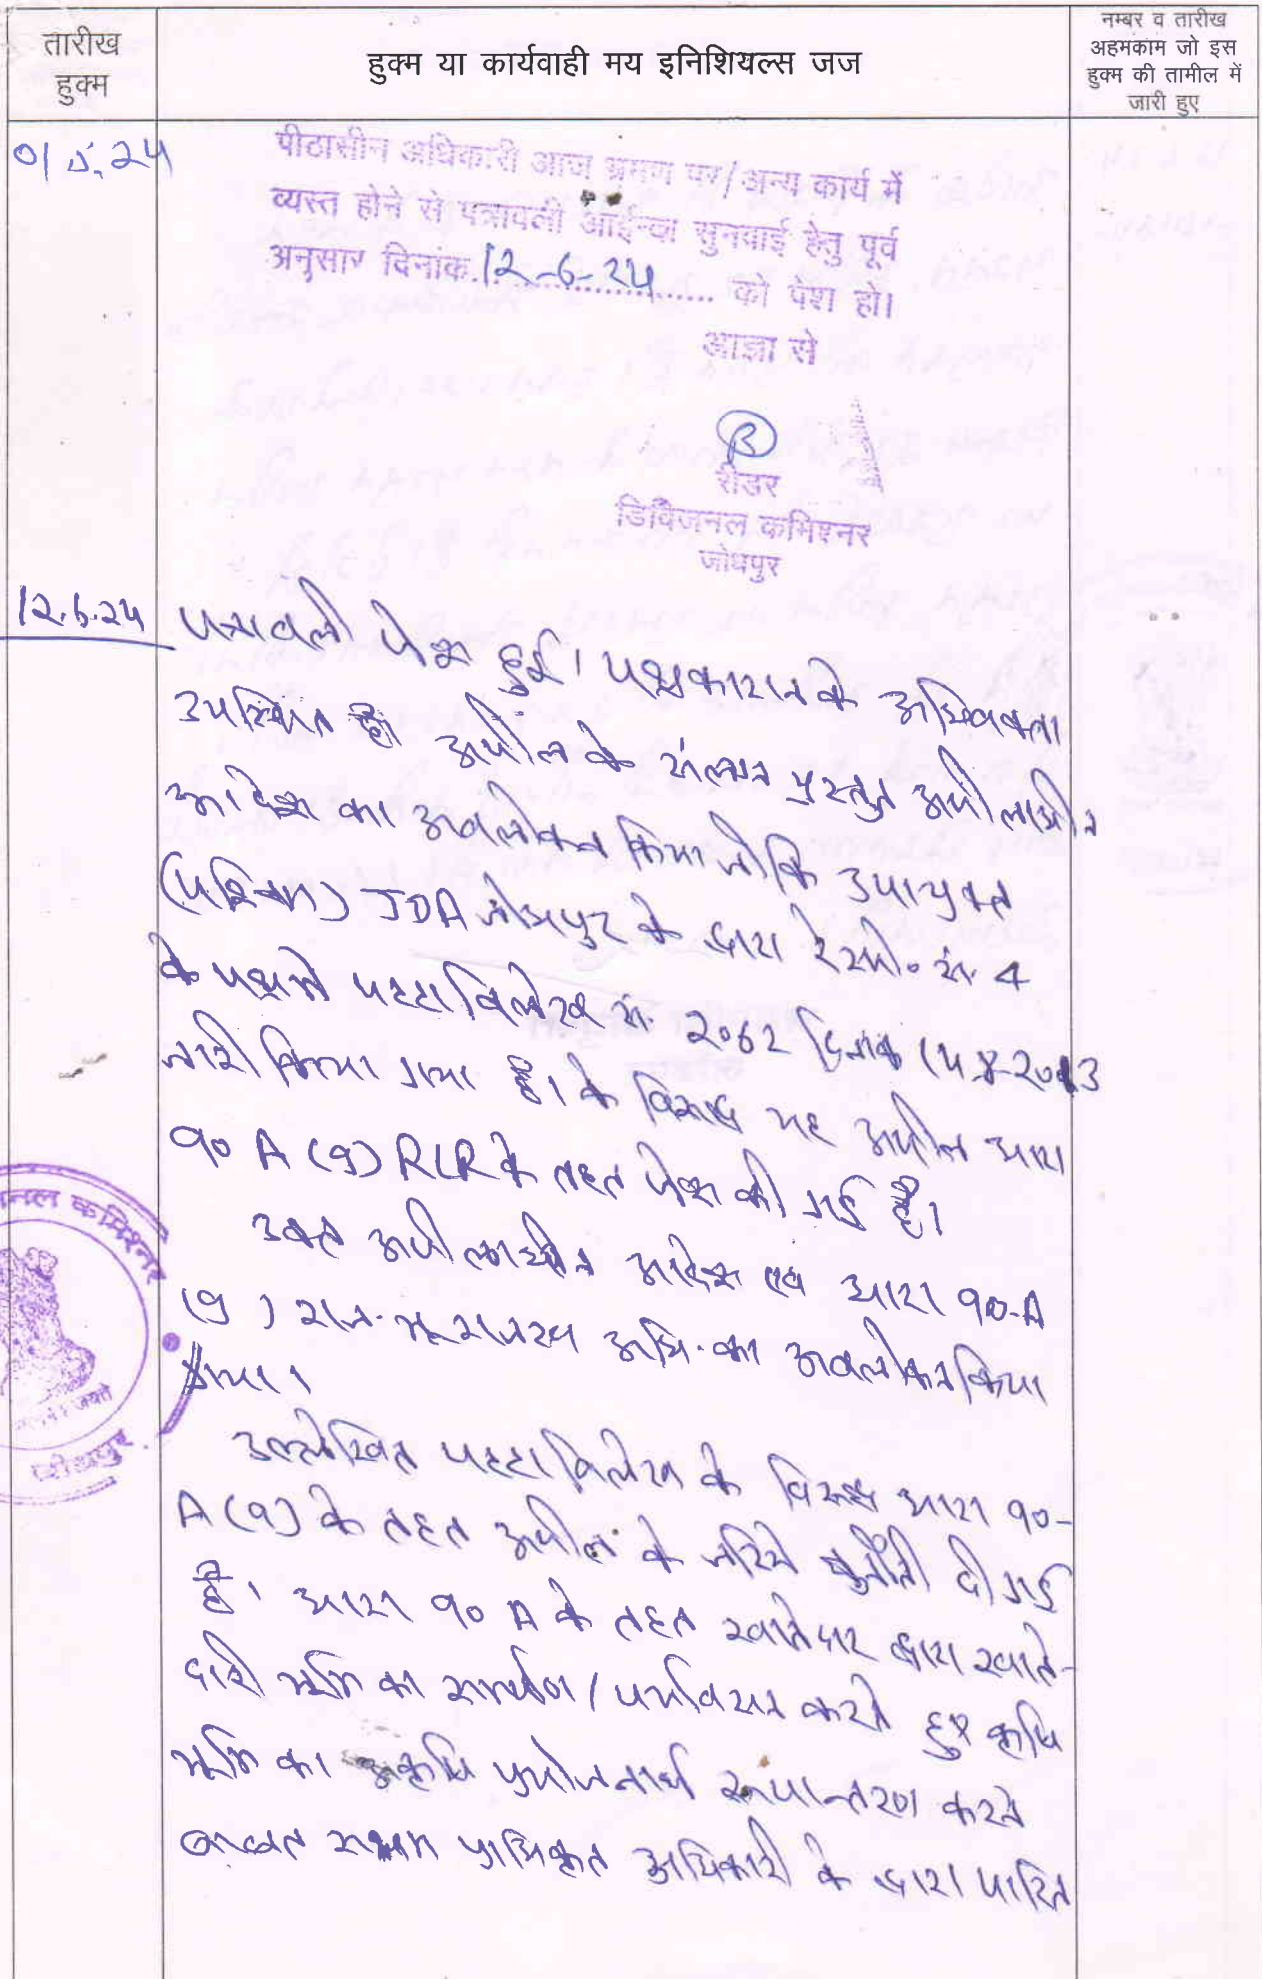 तारीख
हुक्म
हुक्म या कार्यवाही मय इनिशियल्स जज
नम्बर व तारीख
अहमकाम जो इस
हुक्म की तामील में
जारी हुए
01.5.24
पीठासीन अधिकारी आज भ्रमण पर/अन्य कार्य में
व्यस्त होने से पत्रावली आईन्दा सुनवाई हेतु पूर्व
अनुसार दिनांक 12-6-24 को पेश हो।
आज्ञा से
रीडर
डिविजनल कमिश्नर
जोधपुर
12.6.24
पत्रावली पेश हुई। पक्षकारान के अधिवक्ता
उपस्थित है। अपील के संलग्न प्रस्तुत अपीलाधीन
आदेश का अवलोकन किया जोकि उपायुक्त
(पश्चिम) JDA जोधपुर के द्वारा रेस्पो. सं. 4
के पक्ष में पट्टा विलेख सं. 2062 दिनांक
जारी किया गया है। के विरूद्ध यह अपील धारा
90 A (9) RLR के तहत पेश की गई है।
उक्त अपीलाधीन आदेश एवं धारा 90-A
(9) राज. भू राजस्व अधि. का अवलोकन किया
गया।
उल्लेखित पट्टा विलेख के विरूद्ध धारा 90-
A (9) के तहत अपील के जरिये चुनौती दी गई
है। धारा 90 A के तहत खातेदार द्वारा खाते-
दारी भूमि का समर्पण / पर्यवसन करते हुए कृषि
भूमि का अकृषि प्रयोजनार्थ रूपान्तरण करने
बाबत सक्षम प्राधिकृत अधिकारी के द्वारा पारित
नल कमिश्नर
जयते
जोधपुर